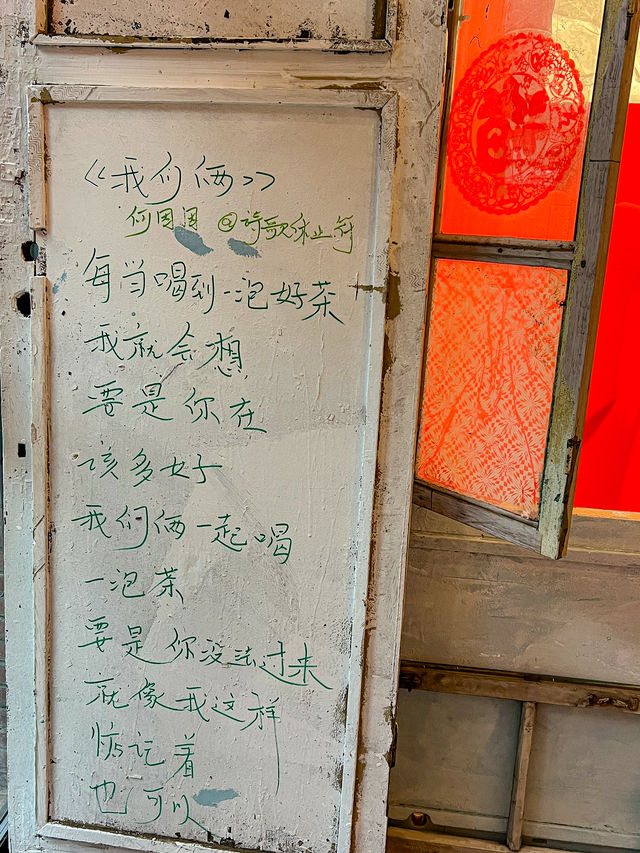 《我们俩》
何困困 @诗歌休止符
每当喝到一泡好茶
我就会想
要是你在
该多好
我们俩一起喝
一泡茶
要是你没法过来
就像我这样
惦记着
也可以